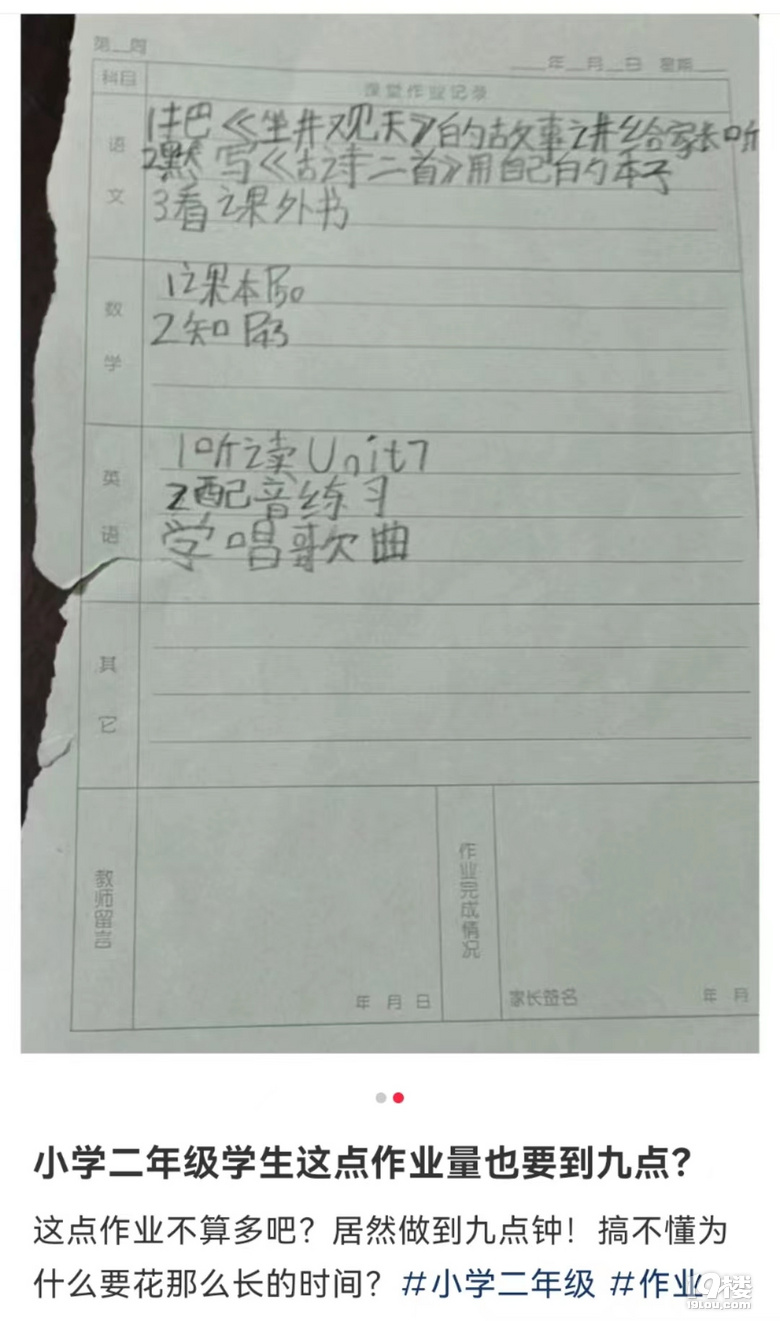 第__周
___年__月__日 星期___
科目 课堂作业记录
语文
1把《坐井观天》的故事讲给家长听
2默写《古诗二首》用自己的本子
3看课外书
数学
1课本P50
2知P43
英语
1听读Unit7
2配音练习
学唱歌曲
其它
教师留言
年 月 日
作业完成情况
家长签名 年 月
小学二年级学生这点作业量也要到九点?
这点作业不算多吧?居然做到九点钟!搞不懂为
什么要花那么长的时间?#小学二年级 #作业
19楼
19lou.com